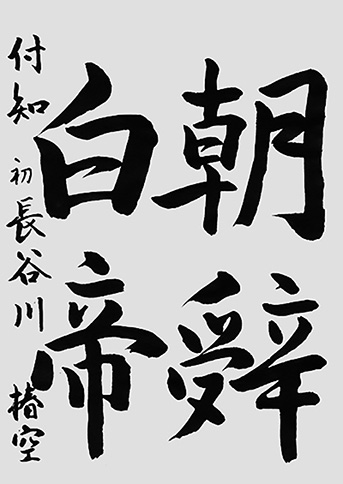 朝辞
白帝
付知 初 長谷川 椿空